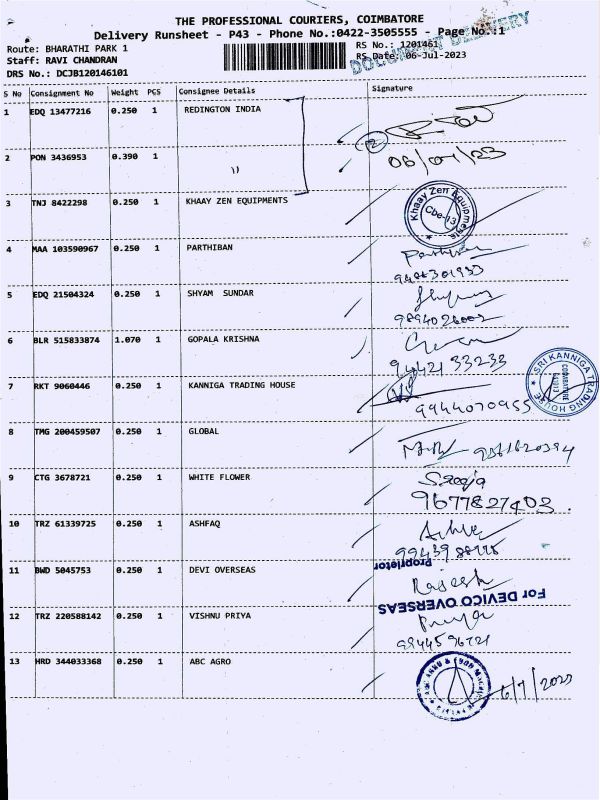 THE PROFESSIONAL COURIERS, COIMBATORE
Delivery Runsheet - P43 - Phone No.:0422-3505555 - Page No.:1
DOCUMENT DELIVERY
Route: BHARATHI PARK 1 RS No.: 1201461
Staff: RAVI CHANDRAN RS Date: 06-Jul-2023
DRS No.: DCJB120146101
S No Consignment No Weight PCS Consignee Details Signature
1 EDQ 13477216 0.250 1 REDINGTON INDIA
2
2 PON 3436953 0.390 1 ,, 06/07/23
3 TNJ 8422298 0.250 1 KHAAY ZEN EQUIPMENTS Khaay Zen Equipments Cbe-13
4 MAA 103590967 0.250 1 PARTHIBAN
5 EDQ 21504324 0.250 1 SHYAM SUNDAR
6 BLR 515833874 1.070 1 GOPALA KRISHNA
94421 33233
7 RKT 9060446 0.250 1 KANNIGA TRADING HOUSE SRI KANNIGA TRADING HOUSE COIMBATORE
9944070955
8 TMG 200459507 0.250 1 GLOBAL
9 CTG 3678721 0.250 1 WHITE FLOWER Saroja
9677827403
10 TRZ 61339725 0.250 1 ASHFAQ
11 BWD 5045753 0.250 1 DEVI OVERSEAS Proprietor
Rajesh
For DEVICO OVERSEAS
12 TRZ 220588142 0.250 1 VISHNU PRIYA Priya
9944596721
13 HRD 344033368 0.250 1 ABC AGRO 6/7/2023